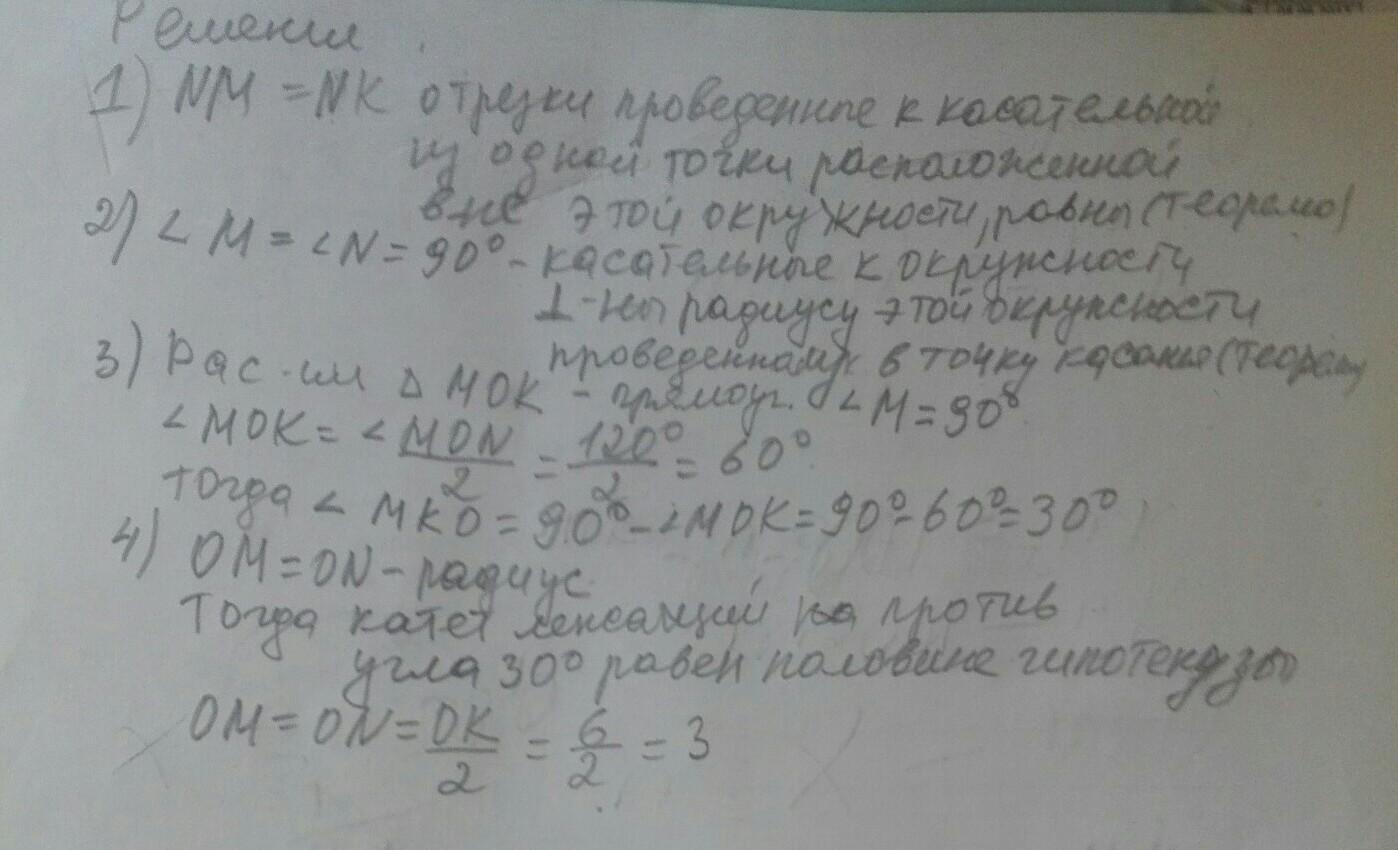 Решения
1) NM = NK отрезки проведенные к касательной
из одной точки расположенной
вне этой окружности, равны (теорема)
2) ∠M = ∠N = 90° - касательные к окружности
⊥-ны радиусу этой окружности
проведенному в точку касания (теорему
3) Рас-им Δ MOK - прямоуг. ∠M = 90°
∠MOK = ∠MON/2 = 120°/2 = 60°
тогда ∠MKO = 90° - ∠MOK = 90° - 60° = 30°
4) OM = ON - радиус
Тогда катет лежащий на против
угла 30° равен половине гипотенузы
OM = ON = OK/2 = 6/2 = 3